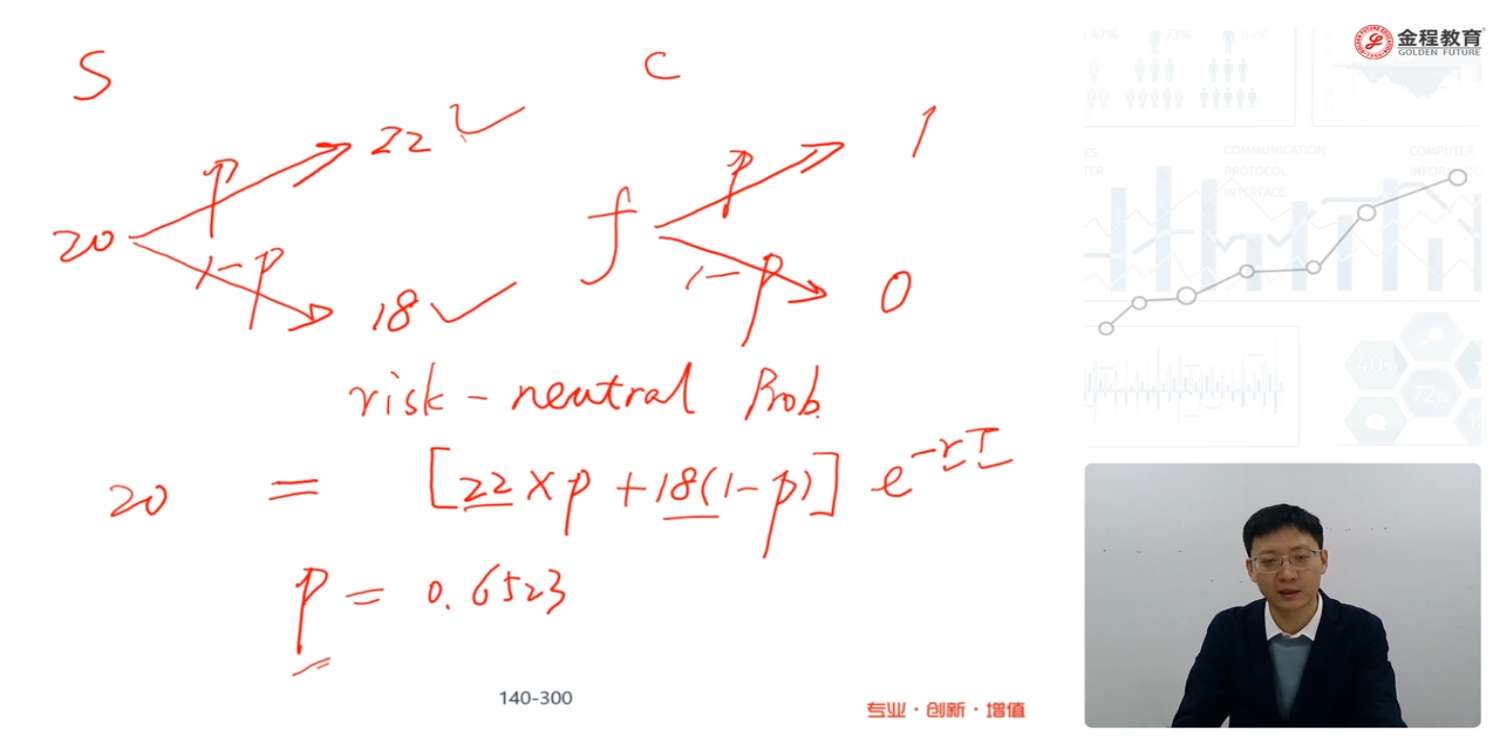 S
C
22
1
p
p
20
f
1-p
1-p
18
0
risk-neutral Prob.
20 = [22×p+18(1-p)] e^-rT
p = 0.6523
140-300
专业·创新·增值
金程教育
GOLDEN FUTURE
COMMUNICATION
PROTOCOL
INTERFACE
COMPUTER